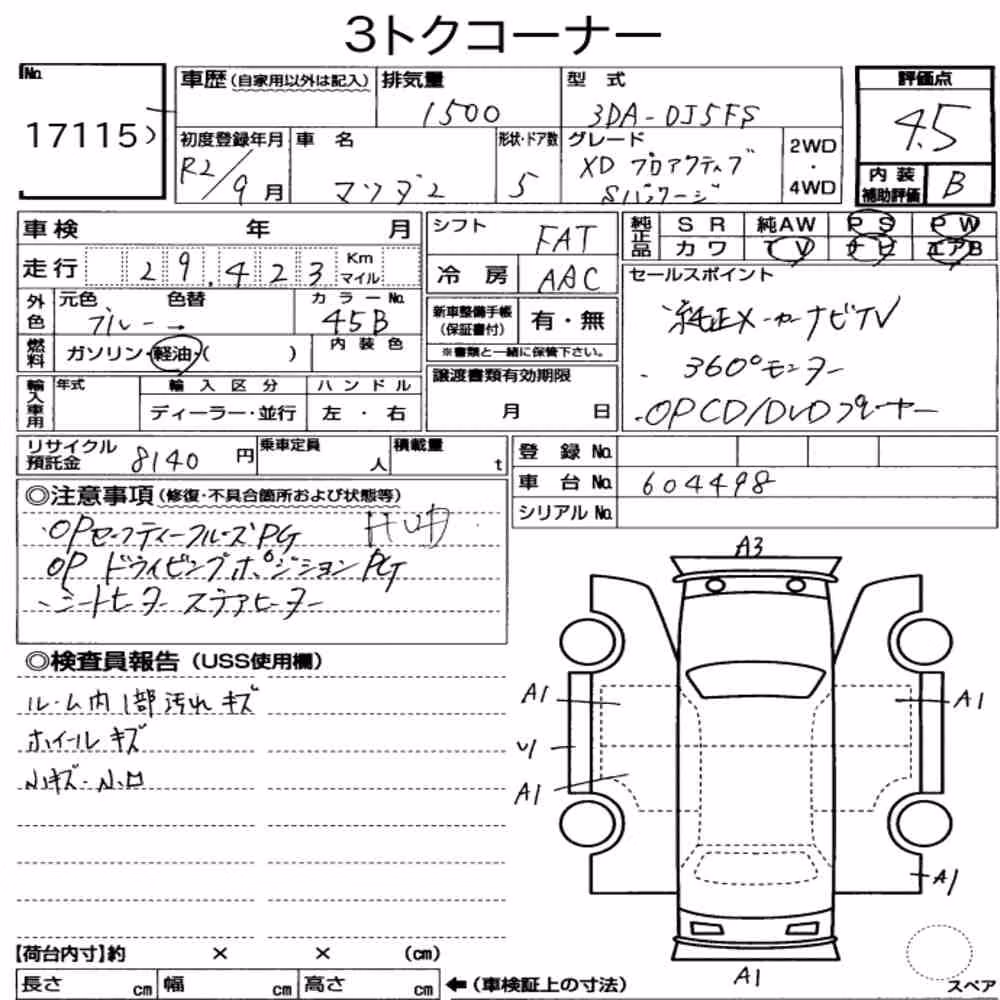 3トクコーナー
No.
17115
車歴(自家用以外は記入)
排気量
1500
型 式
3DA-DJ5FS
評価点
4.5
初度登録年月
R2/9月
車 名
マツダ2
形状・ドア数
5
グレード
XD プロアクティブ
Sパッケージ
2WD
・
4WD
内装
補助評価
B
車検 年 月
走行 29,423 Km マイル
シフト
FAT
冷 房
AAC
純正品
SR 純AW PS PW
カワ TV ナビ エアB
外色
元色 色替
ブルー →
カラーNo.
45B
燃料
ガソリン・軽油・( )
内装色
新車整備手帳
(保証書付)
有・無
※書類と一緒に保管下さい。
セールスポイント
・純正メーカーナビTV
・360°モニター
・OPCD/DVDプレーヤー
輸入車用
年式
輸入区分
ディーラー・並行
ハンドル
左・右
譲渡書類有効期限
月 日
リサイクル
預託金 8140 円
乗車定員
人
積載量
t
登 録 No.
車 台 No. 604498
シリアル No.
◎注意事項(修復・不具合箇所および状態等)
・OPセーフティークルーズPG HUD
・OP ドライビングポジションPG
・シートヒーター ステアヒーター
◎検査員報告(USS使用欄)
ルーム内1部汚れ キズ
ホイールキズ
小キズ・小凹
A3
A1
A1
A1
A1
A1
【荷台内寸】約 × × (cm)
長さ cm 幅 cm 高さ cm
←(車検証上の寸法)
スペア